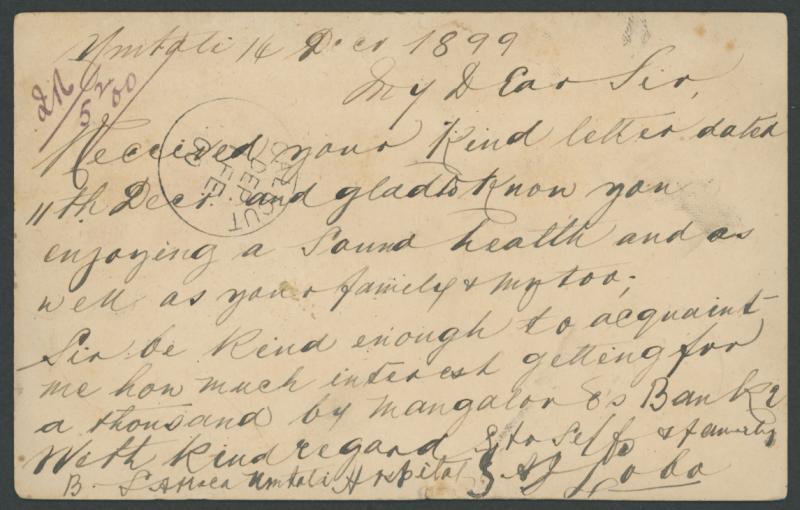 Umtali 14 Decr 1899
My Dear Sir,
5/2/00
Received your Kind letter dated
CALICUT
DEP.
FE
11th Decr. and glad to Know you
enjoying a Sound health and as
well as your family & my too;
Sir be Kind enough to acquaint
me how much interest getting for
a thousand by Mangalor Bank
With Kind regard to Self & family
B. S. Africa Umtali Hospital Lobo